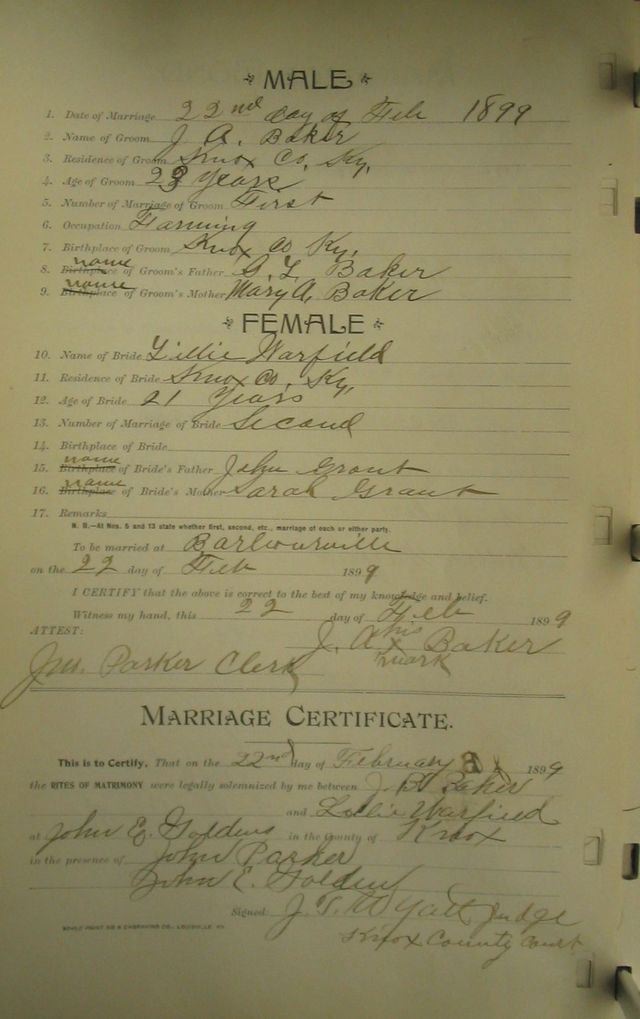 MALE
1. Date of Marriage 22nd day of Feb 1899
2. Name of Groom J. A. Baker
3. Residence of Groom Knox Co, Ky.
4. Age of Groom 23 Years
5. Number of Marriage of Groom First
6. Occupation Farming
7. Birthplace of Groom Knox Co Ky.
8. Birthplace name of Groom's Father G. L. Baker
9. Birthplace name of Groom's Mother Mary A. Baker
FEMALE
10. Name of Bride Lillie Warfield
11. Residence of Bride Knox Co, Ky,
12. Age of Bride 21 Years
13. Number of Marriage of Bride Second
14. Birthplace of Bride
15. Birthplace name of Bride's Father John Grant
16. Birthplace name of Bride's Mother Sarah Grant
17. Remarks
N. B.—At Nos. 5 and 13 state whether first, second, etc., marriage of each or either party.
To be married at Barbourville
on the 22 day of Feb 1899
I CERTIFY that the above is correct to the best of my knowledge and belief.
Witness my hand, this 22 day of Feb 1899
ATTEST: J. A. his x mark Baker
Jno. Parker Clerk
MARRIAGE CERTIFICATE.
This is to Certify. That on the 22nd day of February 1899
the RITES OF MATRIMONY were legally solemnized by me between J. B. Baker
and Lillie Warfield
at John E. Goldens in the County of Knox
in the presence of John Parker
John E. Golden
Signed: J. T. Wyatt Judge
Knox County Court
CO., LOUISVILLE, KY.